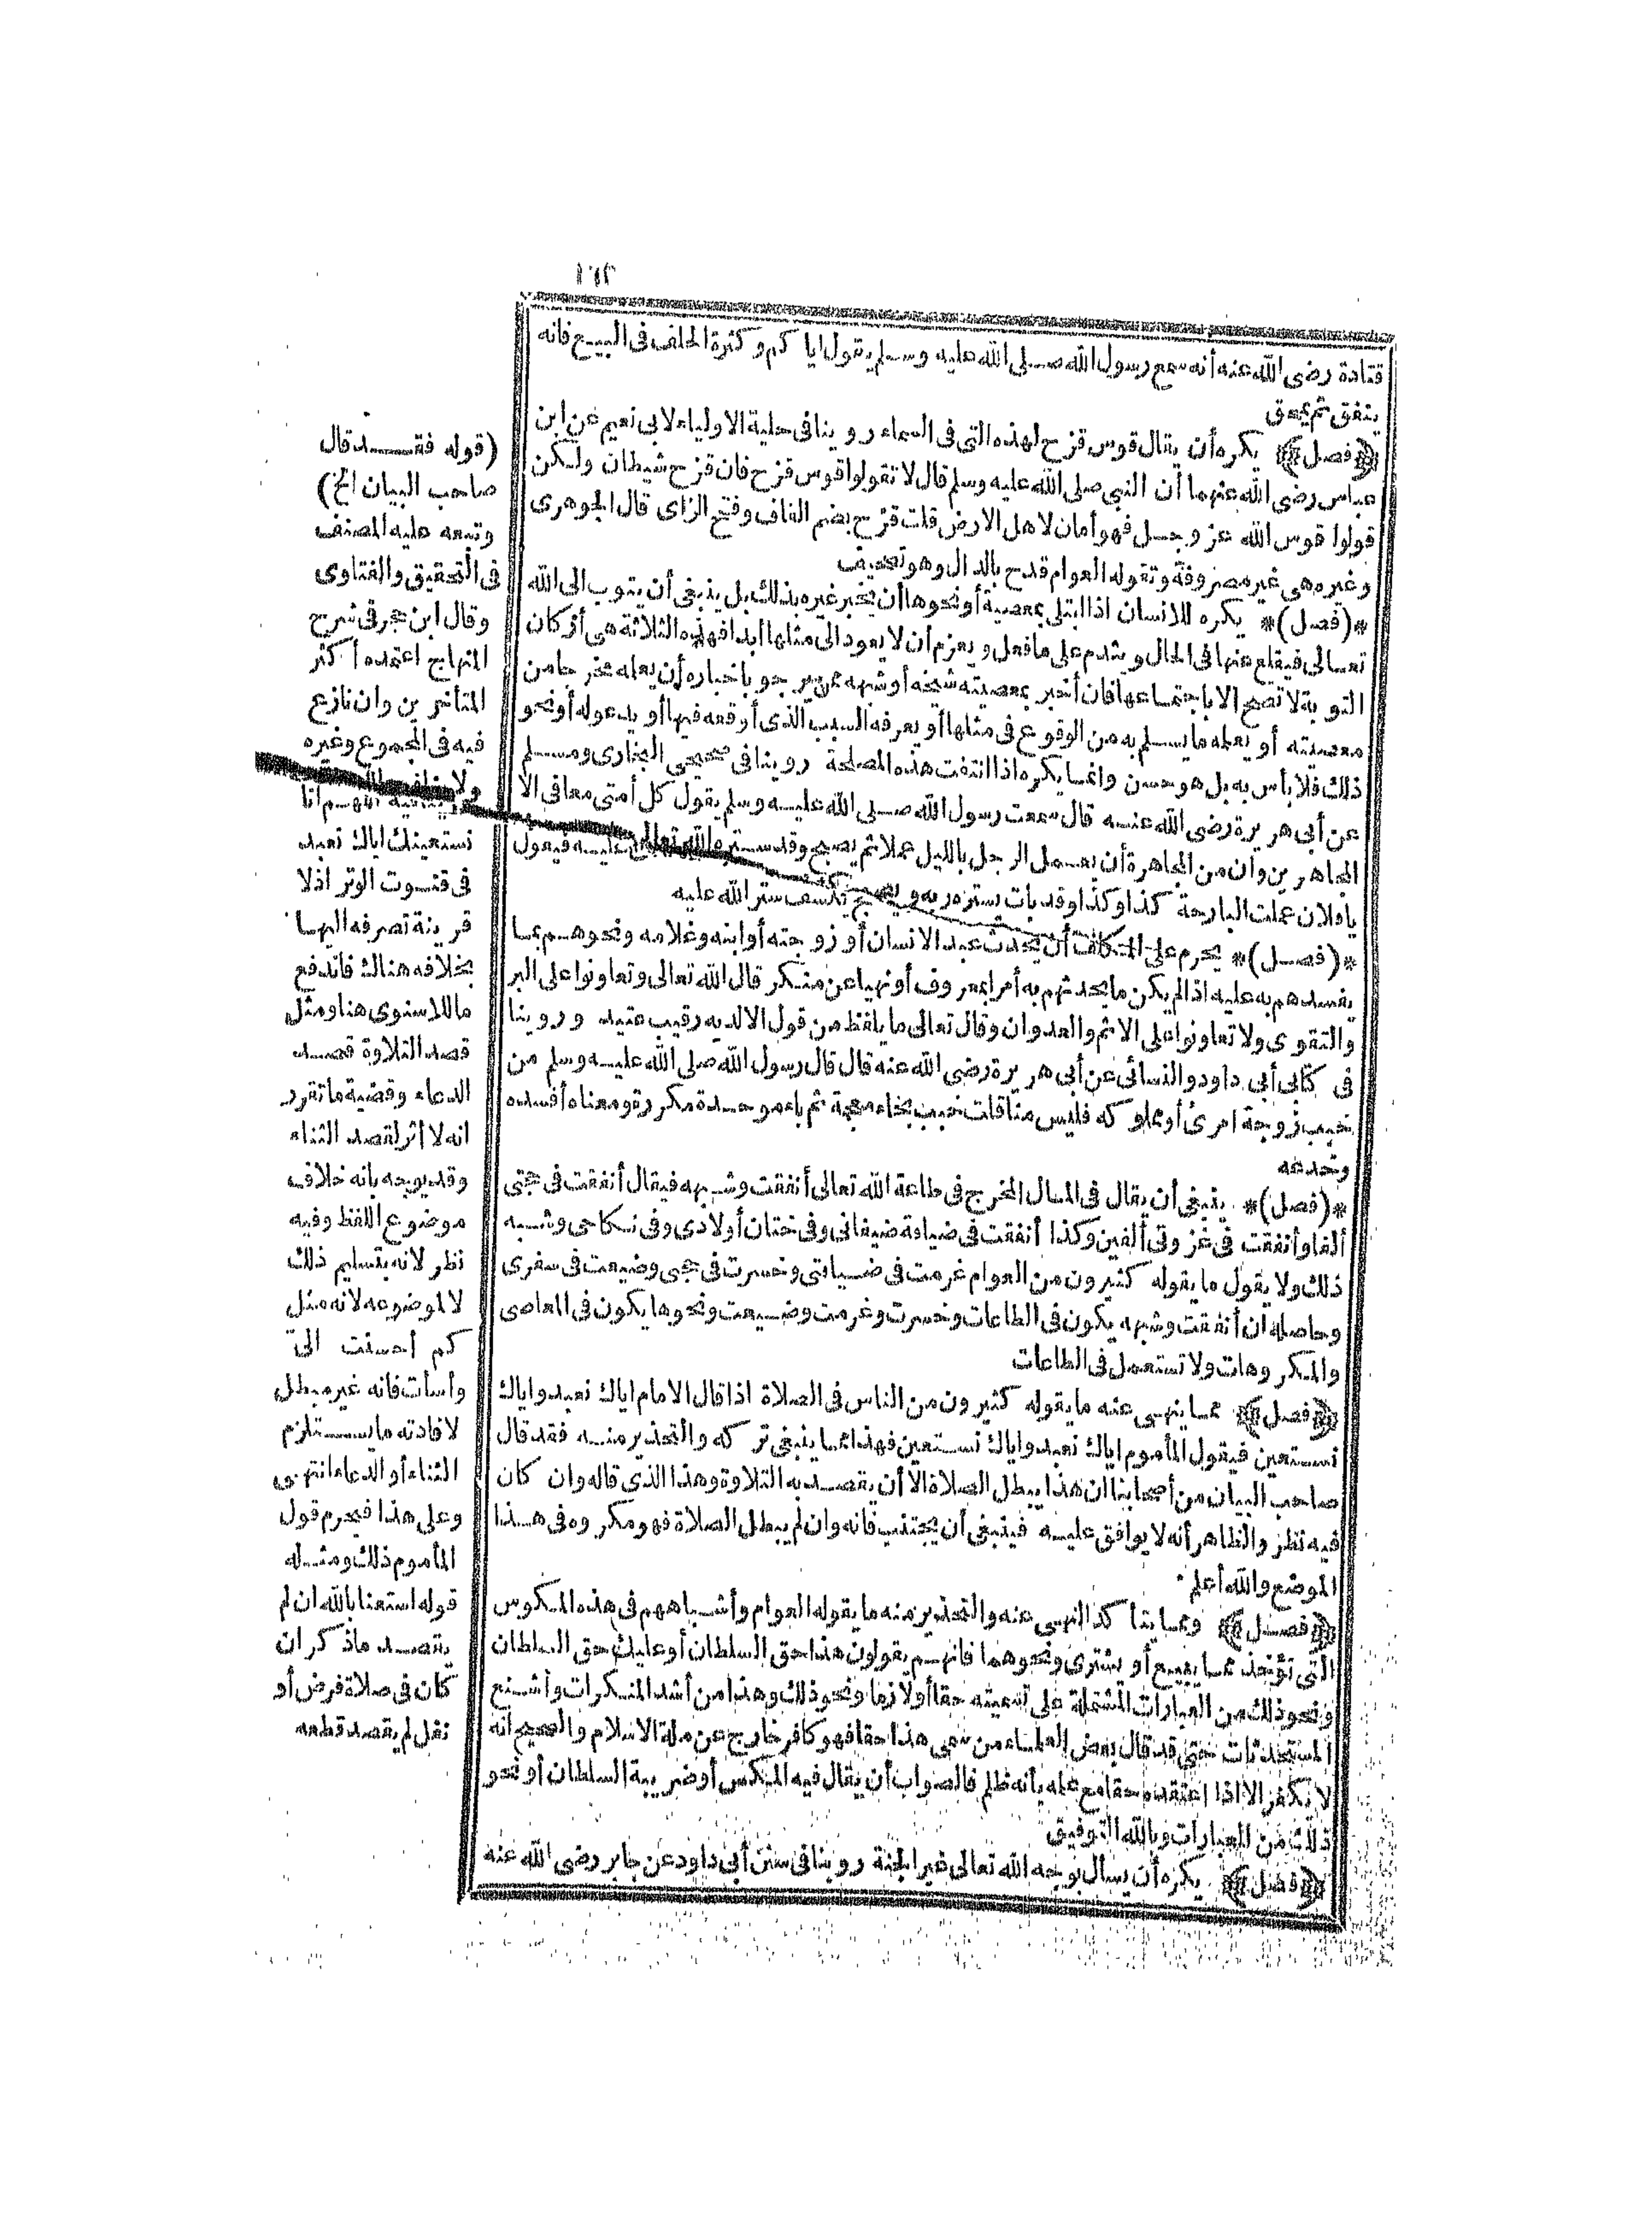 قتادة رضى الله عنه أنه سمع رسول الله صلى الله عليه وسلم يقول ايا كم وكثرة الحلف فى البيع فانه
ينفق ثم يمحق
﴿فصل﴾ يكره أن يقال قوس قزح لهذه التى فى السماء روينا فى حلية الاولياء لابى نعيم عن ابن
عباس رضى الله عنهما أن النبي صلى الله عليه وسلم قال لا تقولوا قوس قزح فان قزح شيطان ولكن
قولوا قوس الله عز وجل فهو أمان لاهل الارض قلت قزح بضم القاف وفتح الزاى قال الجوهرى
وغيره هى غير مصروفة وتقوله العوام قدح بالدال وهو تصحيف
*(فصل)* يكره للانسان اذا ابتلى بمعصية أو نحوها أن يخبر غيره بذلك بل ينبغى أن يتوب الى الله
تعالى فيقلع عنها فى الحال ويندم على ما فعل ويعزم أن لا يعود الى مثلها أبدا فهذه الثلاثة هى أركان
التوبة لا تصح الا باجتماعها فان أخبر بمعصيته شيخه أو شبهه ممن يرجو باخباره أن يعلمه مخرجا من
معصيته أو يعلمه ما يسلم به من الوقوع فى مثلها أو يعرفه السبب الذى أوقعه فيها أو يدعو له أو نحو
ذلك فلا بأس به بل هو حسن وانما يكره اذا انتفت هذه المصلحة روينا فى صحيحى البخارى ومسلم
عن أبى هريرة رضى الله عنه قال سمعت رسول الله صلى الله عليه وسلم يقول كل أمتى معافى الا
المجاهرين وان من المجاهرة أن يعمل الرجل بالليل عملا ثم يصبح وقد ستره الله تعالى عليه فيقول
يا فلان عملت البارحة كذا وكذا وقد بات يستره ربه ويصبح يكشف ستر الله عليه
*(فصل)* يحرم على المكلف أن يحدث عبد الانسان أو زوجته أو ابنه وغلامه ونحوهم بما
يفسدهم به عليه اذا لم يكن ما يحدثهم به أمرا بمعروف أو نهيا عن منكر قال الله تعالى وتعاونوا على البر
والتقوى ولا تعاونوا على الاثم والعدوان وقال تعالى ما يلفظ من قول الا لديه رقيب عتيد وروينا
فى كتابى أبى داود والنسائى عن أبى هريرة رضى الله عنه قال قال رسول الله صلى الله عليه وسلم من
خبب زوجة امرئ أو مملوكه فليس منا قلت خبب بخاء معجمة ثم باء موحدة مكررة ومعناه أفسده
وخدعه
*(فصل)* ينبغى أن يقال فى المال المخرج فى طاعة الله تعالى أنفقت وشبهه فيقال أنفقت فى حجتى
ألفا وأنفقت فى غزوتى ألفين وكذا أنفقت فى ضيافة ضيفانى وفى ختان أولادى وفى نكاحى وشبه
ذلك ولا يقول ما يقوله كثيرون من العوام غرمت فى ضيافتى وخسرت فى حجى وضيعت فى سفرى
وحاصله ان أنفقت وشبهه يكون فى الطاعات وخسرت وغرمت وضيعت ونحوها يكون فى المعاصى
والمكروهات ولا تستعمل فى الطاعات
﴿فصل﴾ مما ينهى عنه ما يقوله كثيرون من الناس فى الصلاة اذا قال الامام اياك نعبد واياك
نستعين فيقول المأموم اياك نعبد واياك نستعين فهذا مما ينبغى تركه والتحذير منه فقد قال
صاحب البيان من أصحابنا ان هذا يبطل الصلاة الا أن يقصد به التلاوة وهذا الذى قاله وان كان
فيه نظر والظاهر أنه لا يوافق عليه فينبغى أن يجتنب فانه وان لم يبطل الصلاة فهو مكروه فى هذا
الموضع والله أعلم
﴿فصل﴾ ومما يتأكد النهى عنه والتحذير منه ما يقوله العوام وأشباههم فى هذه المكوس
التى تؤخذ مما يبيع أو يشترى ونحوهما فانهم يقولون هذا حق السلطان أو عليك حق السلطان
ونحو ذلك من العبارات المشتملة على تسميته حقا أو لازما ونحو ذلك وهذا من أشد المنكرات وأشنع
المستحدثات حتى قد قال بعض العلماء من سمى هذا حقا فهو كافر خارج عن ملة الاسلام والصحيح انه
لا يكفر الا اذا اعتقده حقا مع علمه بأنه ظلم فالصواب أن يقال فيه المكس أو ضريبة السلطان أو نحو
ذلك من العبارات وبالله التوفيق
﴿فصل﴾ يكره أن يسأل بوجه الله تعالى غير الجنة روينا فى سنن أبى داود عن جابر رضى الله عنه
(قوله فقد قال
صاحب البيان الخ)
وتبعه عليه المصنف
فى التحقيق والفتاوى
وقال ابن حجر فى شرح
المنهاج اعتمده أكثر
المتأخرين وان نازع
فيه فى المجموع وغيره
ولا ينافيه اللهم انا
نستعينك اياك نعبد
فى قنوت الوتر اذلا
قرينة تصرفه اليها
بخلافه هناك فاندفع
ما للاسنوى هنا ومثل
قصد التلاوة قصد
الدعاء وقضية ما تقرر
انه لا أثر لقصد الثناء
وقد يوجه بانه خلاف
موضوع اللفظ وفيه
نظر لانه بتسليم ذلك
لا لموضوعه لانه مثل
كم أحسنت الىّ
وأسأت فانه غير مبطل
لافادته ما يستلزم
الثناء أو الدعاء انتهى
وعلى هذا فيحرم قول
المأموم ذلك ومثله
قوله استعنا بالله ان لم
يقصد ما ذكر ان
كان فى صلاة فرض أو
نفل لم يقصد قطعه